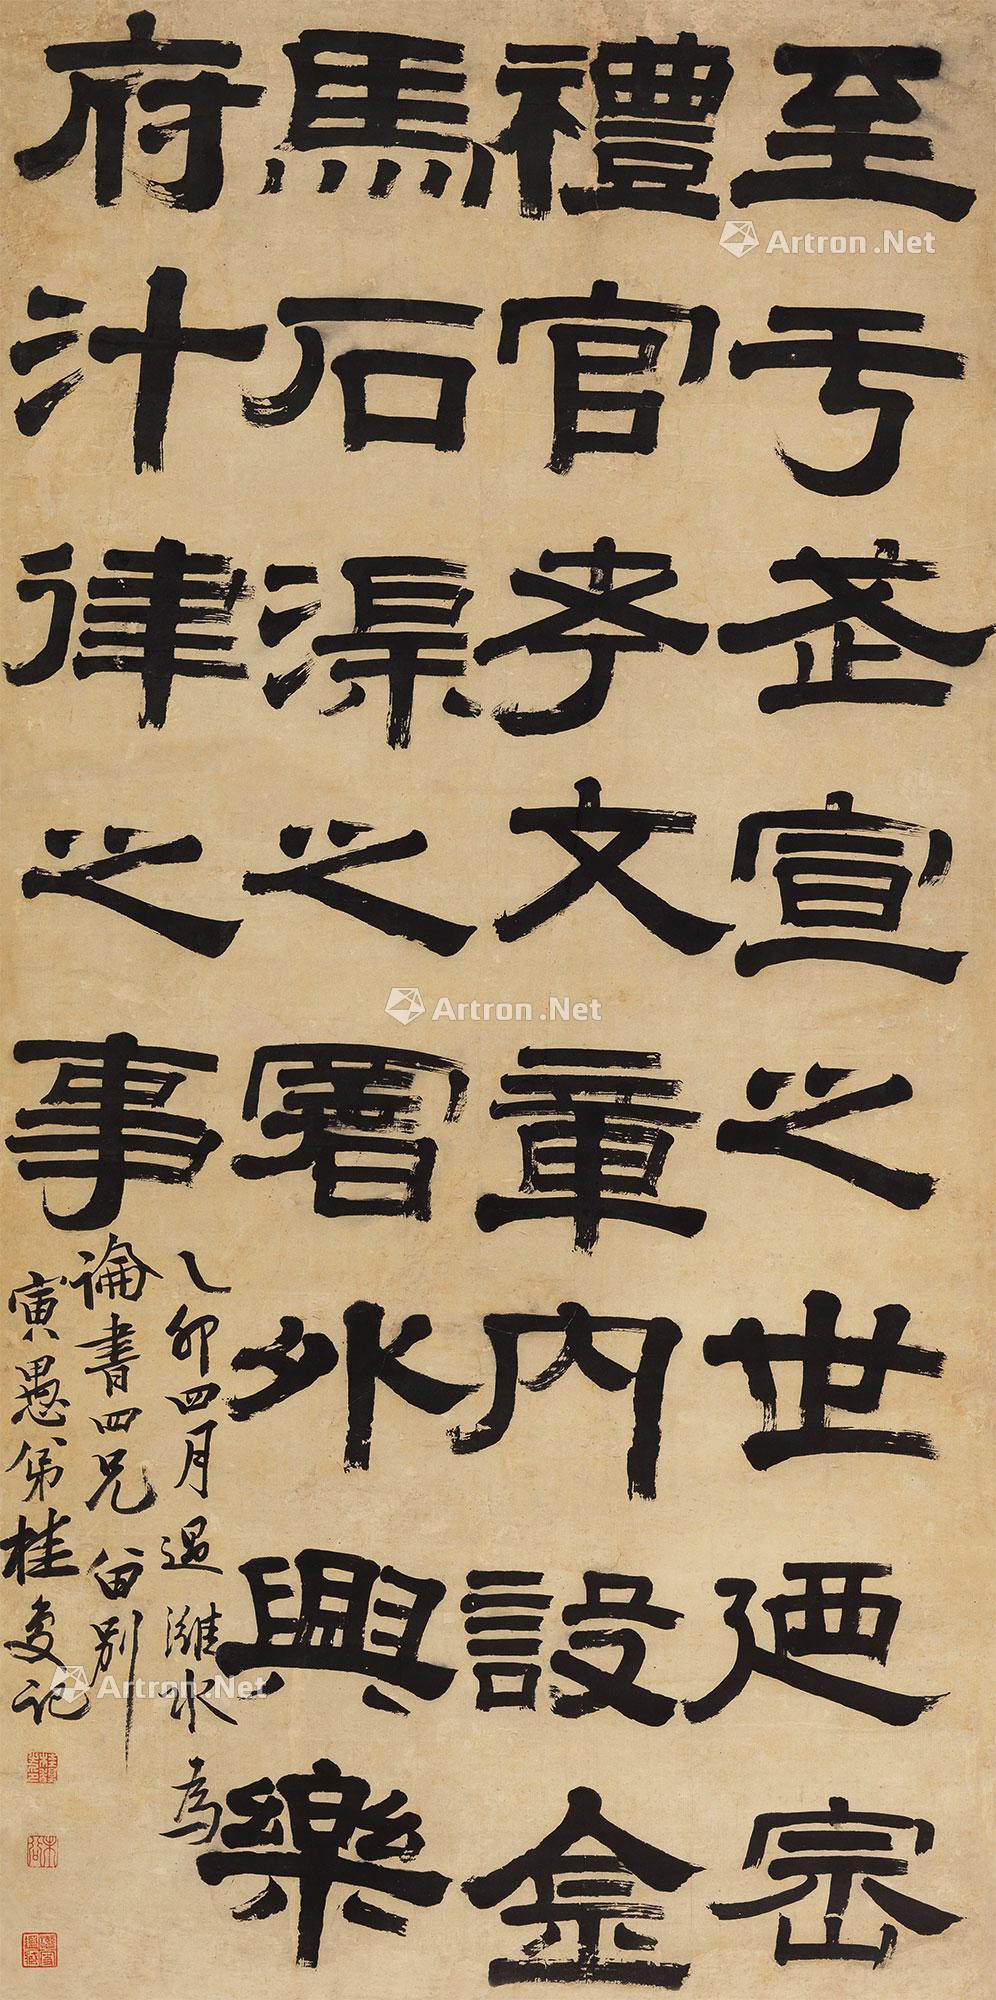 至亏武宣之世廼崇
禮官考文章内設金
馬石渠之署外興樂
府汁律之事
乙卯四月過濰水為
論書四兄留別
寅愚弟桂馥記
Artron.Net
Artron.Net
Artron.Net